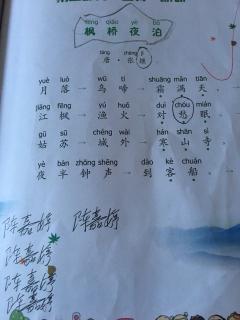 fēng qiáo yè bó
枫桥夜泊
唐·张继
yuè luò wū tí shuāng mǎn tiān
月落—乌啼—霜满天，
jiāng fēng yú huǒ duì chóu mián
江枫—渔火—对愁眠。
gū sū chéng wài hán shān sì
姑苏—城外—寒山寺，
yè bàn zhōng shēng dào kè chuán
夜半钟声—到客船。
陈嘉婷 陈嘉婷
陈嘉婷
陈嘉婷
陈嘉婷